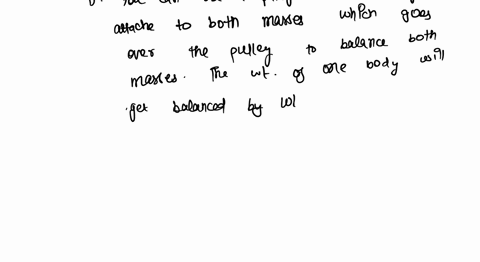 attache to both masses which goes
over the pulley to balance both
masses. The wt. of one body will
get balanced by wl